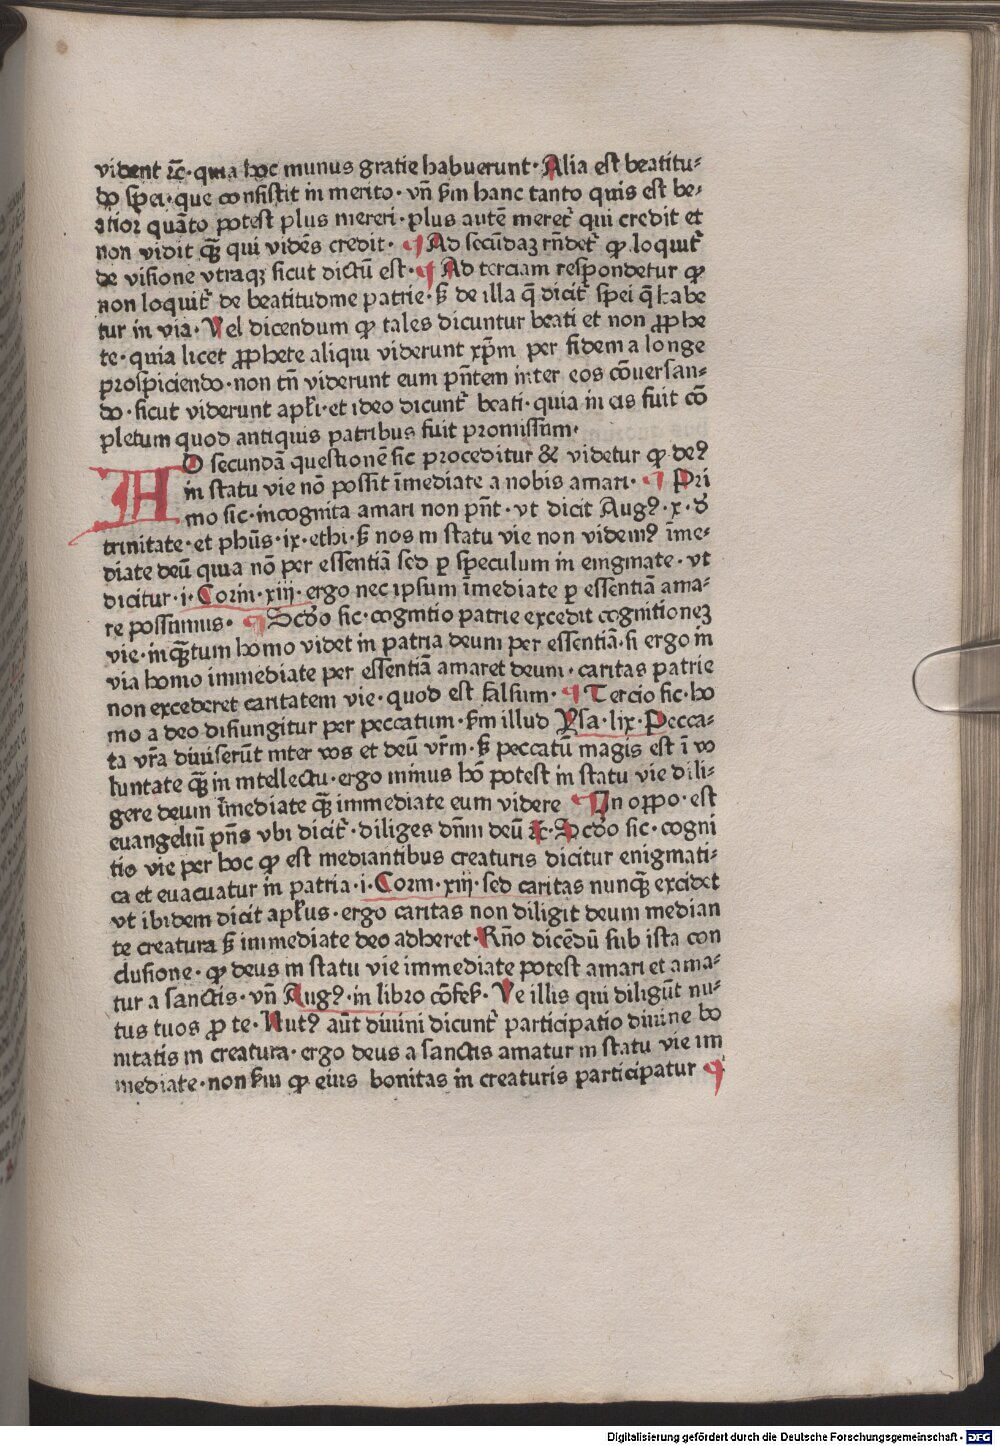 vident ⁊c̄·quia hoc munus gratie habuerunt·Alia est beatitu⸗
do spei·que consistit in merito·vn̄ ẜm hanc tanto quis est be⸗
atior quāto potest plus mereri·plus autē meret᷑ qui credit et
non vidit qꝫ̄ qui vidēs credit· ¶ Ad secūdaꝫ rn̄det᷑ ꝙ loquit᷑
de visione vtraqꝫ sicut dictū est·¶ Ad terciam respondetur ꝙ
non loquit᷑ de beatitudine patrie·ẜ de illa q̄ dicit᷑ spei q̄ habe
tur in via·Vel dicendum ꝙ tales dicuntur beati et non ꝓphe
te·quia licet ꝓphete aliqui viderunt xp̄m per fidem a longe
prospiciendo·non tn̄ viderunt eum pn̄tem inter eos cōuersan⸗
do·sicut viderunt apl̄i·et ideo dicunt᷑ beati·quia in eis fuit cō
pletum quod antiquis patribus fuit promissum·
AD secundā questionē sic proceditur & videtur ꝙ deꝰ
in statu vie nō possit īmediate a nobis amari· ¶ Pri
mo sic·incognita amari non pn̄t·vt dicit Augꝰ·x·d̄
trinitate·et phūs·ix·ethi·ẜ nos in statu vie non videmꝰ īme⸗
diate deū quia nō per essentiā sed ꝑ speculum in enigmate·vt
dicitur·i·Corin·xiii·ergo nec ipsum īmediate ꝑ essentiā ama⸗
re possumus· ¶ Scd̄o sic·cognitio patrie excedit cognitioneꝫ
vie·inqꝫ̄tum homo videt in patria deum per essentiā·si ergo in
via homo immediate per essentiā amaret deum·caritas patrie
non excederet caritatem vie·quod est falsum·¶ Tercio sic·ho
mo a deo disiungitur per peccatum·ẜm illud Ysa·lix·Pecca⸗
ta vr̄a diuiserūt inter vos et deū vr̄m·ẜ peccatū magis est ī vo
luntate qꝫ̄ in intellectu·ergo minus hō potest in statu vie dili⸗
gere deum īmediate qꝫ̄ immediate eum videre ¶ In oppo·est
euangeliū pn̄s vbi dicit᷑·diliges dn̄m deū ⁊c̄·Scd̄o sic·cogni
tio vie per hoc ꝙ est mediantibus creaturis dicitur enigmati⸗
ca et euacuatur in patria·i·Corin·xiii·sed caritas nunqꝫ̄ excidet
vt ibidem dicit apl̄us·ergo caritas non diligit deum median
te creatura ẜ immediate deo adheret·Rn̄o dicēdū sub ista con
clusione·ꝙ deus in statu vie immediate potest amari et ama⸗
tur a sanctis·vn̄ Augꝰ·in libro cōfes̄·Ve illis qui diligūt nu⸗
tus tuos ꝓ te·Nutꝰ aūt diuini dicunt᷑ participatio diuine bo
nitatis in creatura·ergo deus a sanctis amatur in statu vie im
mediate·non ẜm ꝙ eius bonitas in creaturis participatur ¶
Digitalisierung gefördert durch die Deutsche Forschungsgemeinschaft · DFG